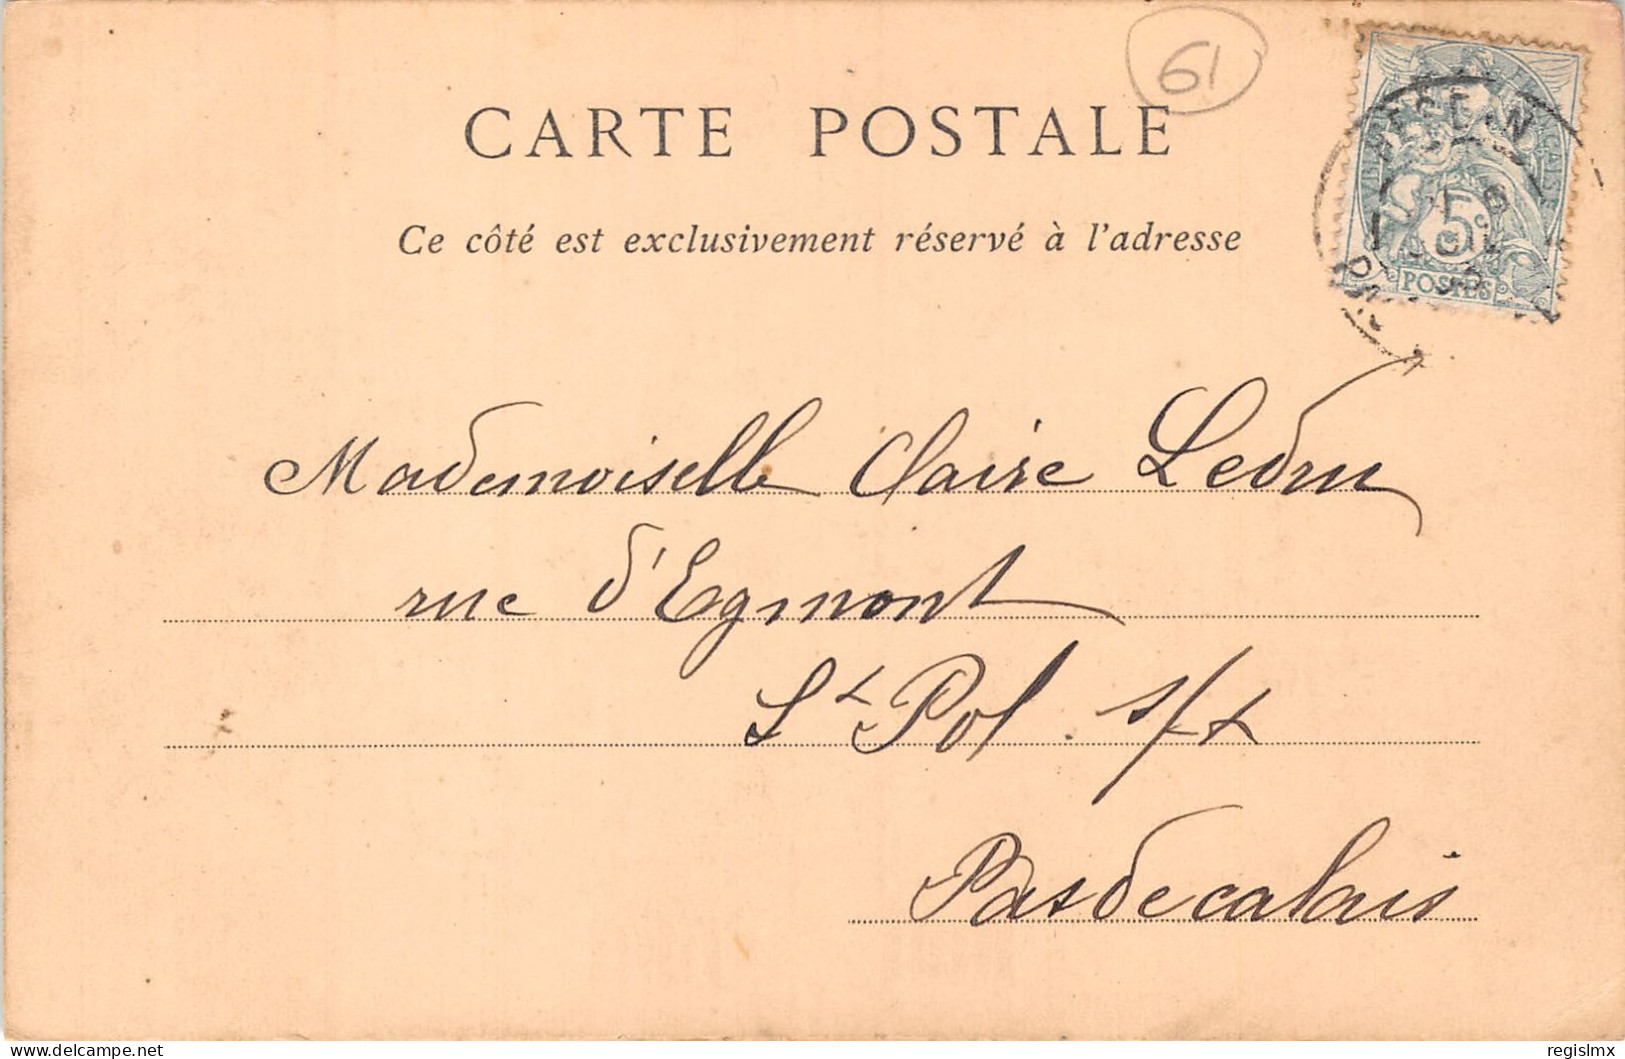 61
CARTE POSTALE
Ce côté est exclusivement réservé à l'adresse
5c
POSTES
Mademoiselle Claire Ledru
rue d'Egmont
St Pol. s/t
Pas de calais
delcampe.net
regislmx